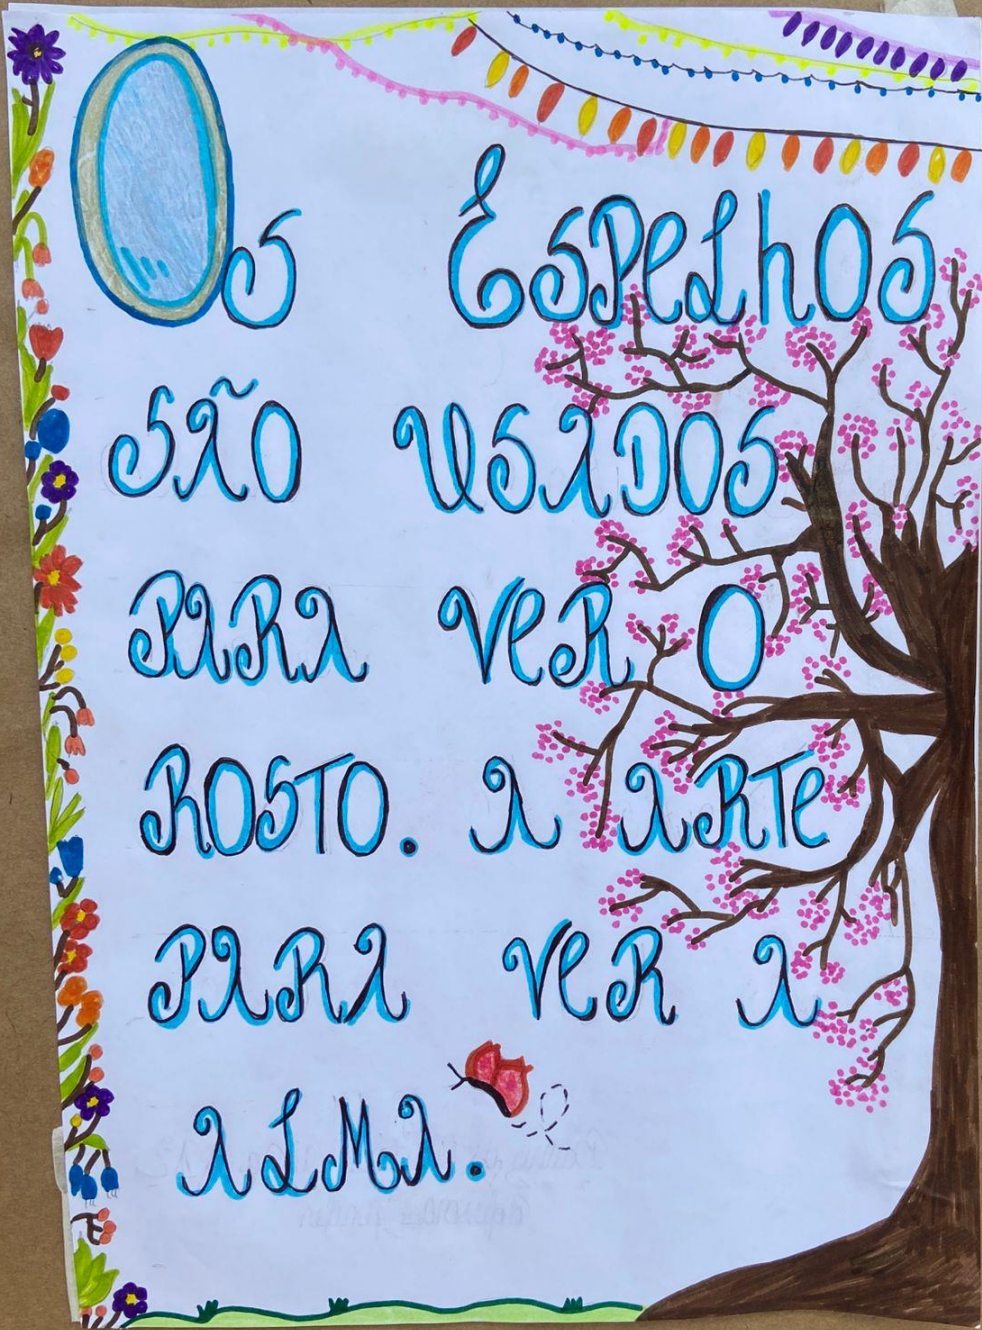 Os Espelhos
são usados
para ver o
rosto. A arte
para ver a
alma.